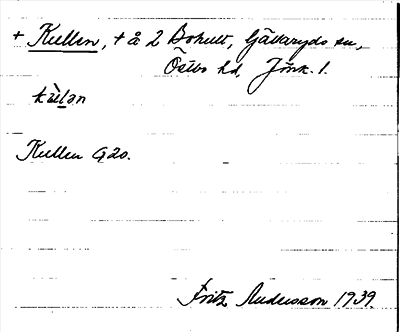 + Kullen, + å 2 Bohult, Gällaryds sn,
Östbo hd, Jönk. l.
kùlən
Kullen G20.
Fritz Andersson 1939